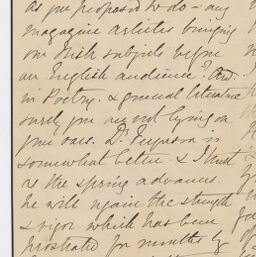 as you proposed to do - any
magazine articles bringing
on Irish subjects before
an English audience? And
in Poetry, & general literature
surely you are not lying on
your oars. Dr. Ferguson is
somewhat better & I trust
as the spring advances
he will regain the strength
& vigor which has been
prostrated for months by